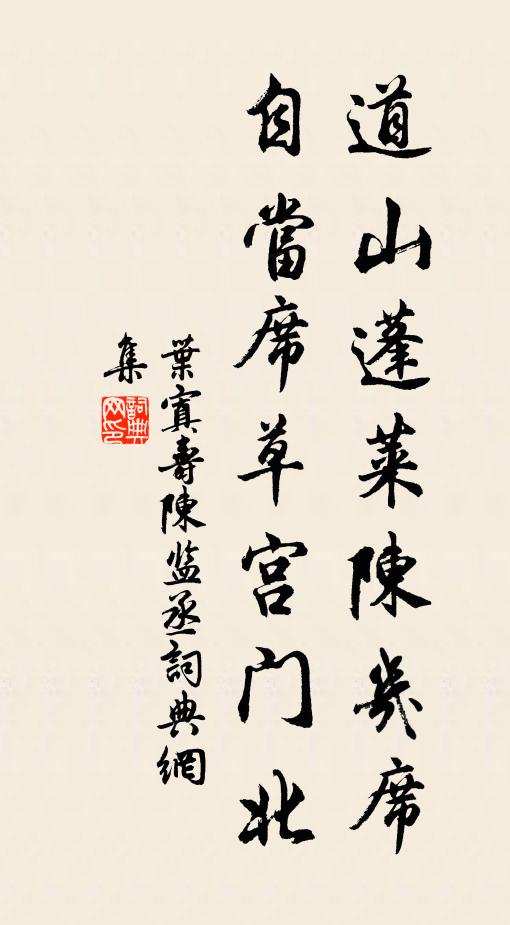 道山蓬萊陳几席
自當席草宮門北
葉寘壽陳监丞詞典網
集
詞典網印